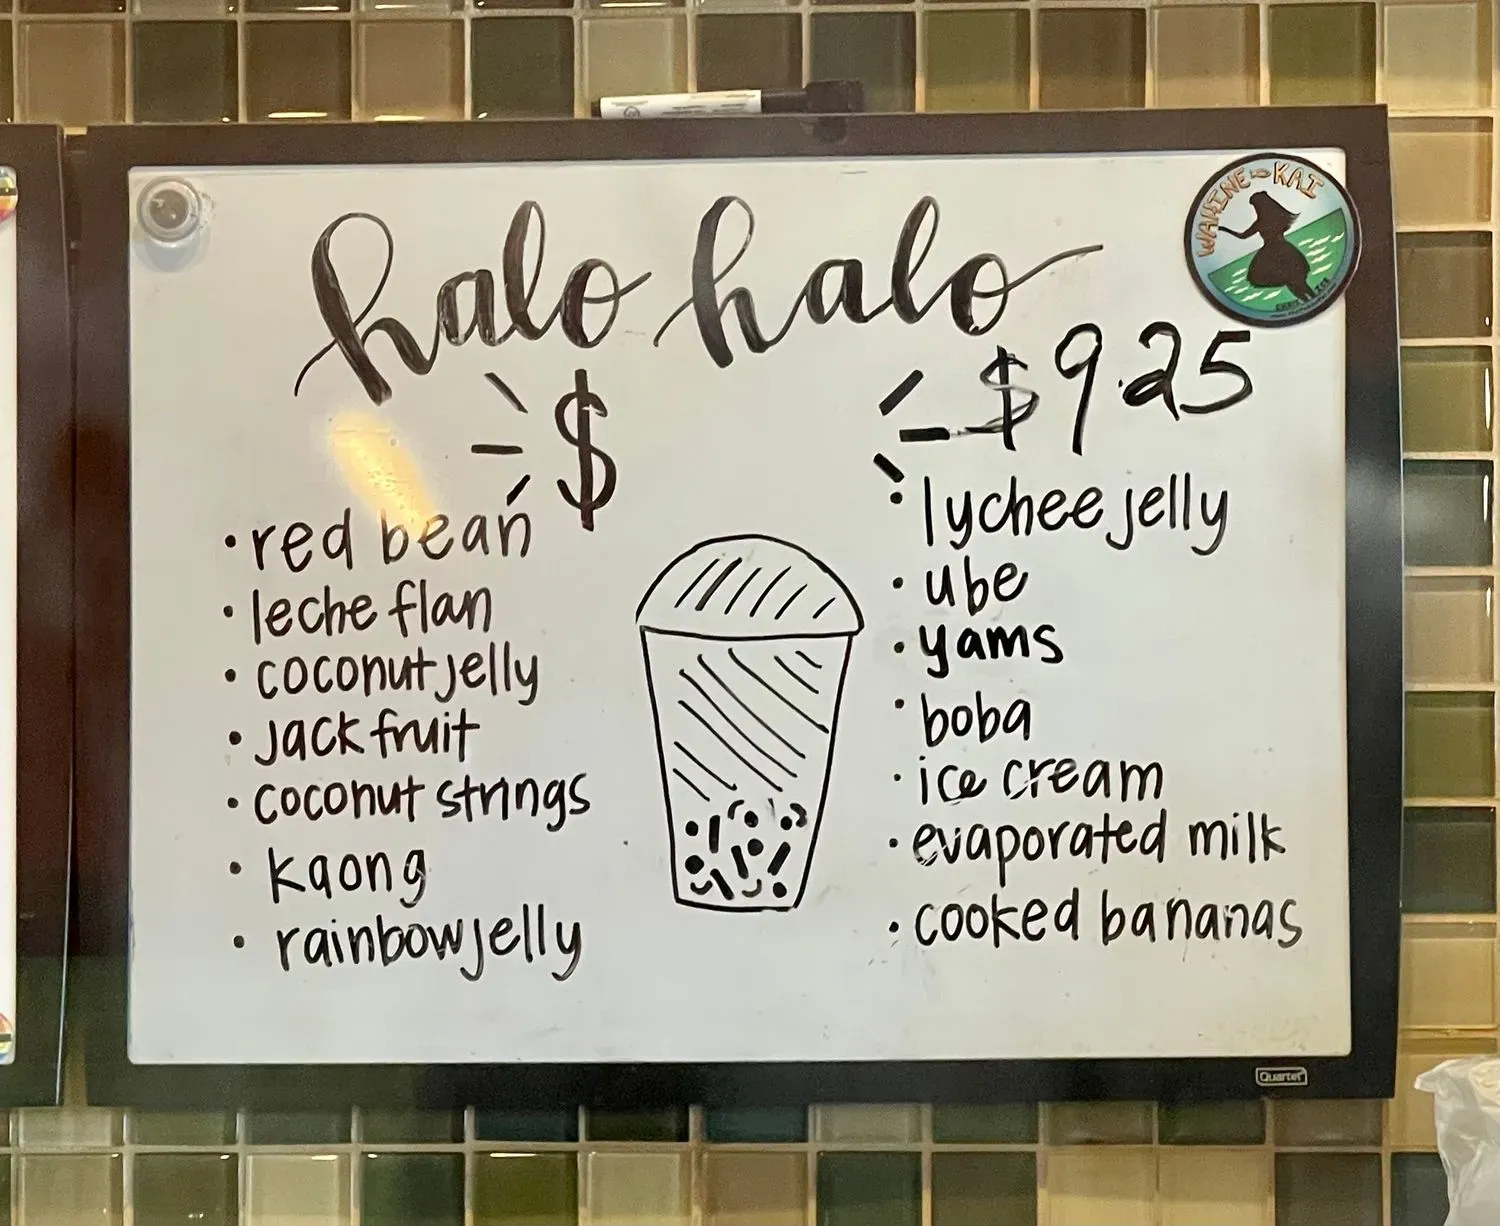 halo halo
WAHINE KAI
$
$9.25
• red bean
• leche flan
• coconut jelly
• jackfruit
• coconut strings
• kaong
• rainbow jelly
• lychee jelly
• ube
• yams
• boba
• ice cream
• evaporated milk
• cooked bananas
Quartet